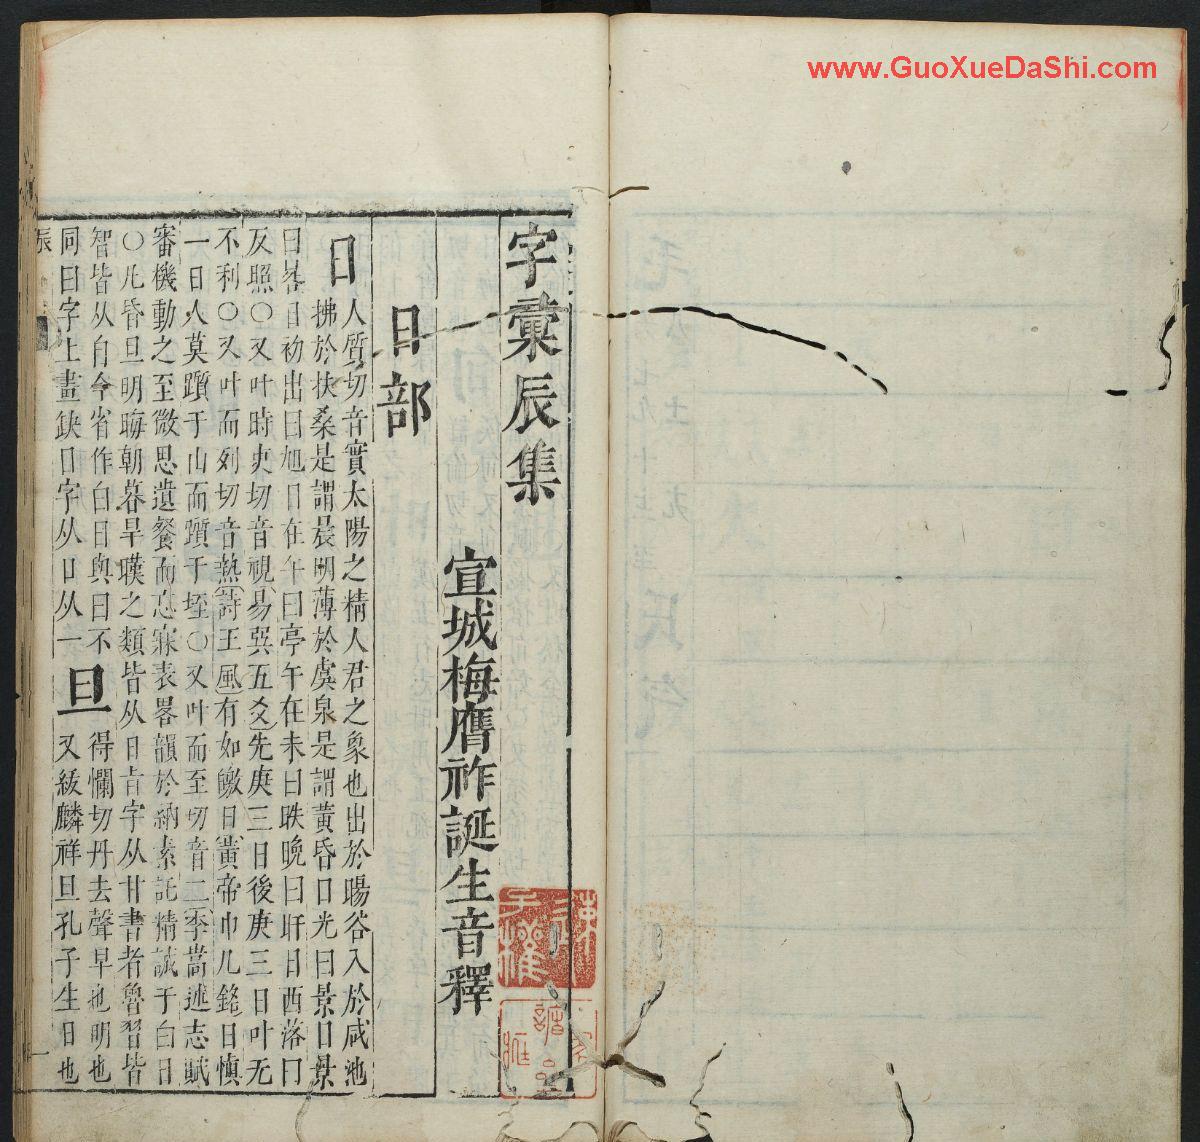 www.GuoXueDaShi.com
字彙辰集
宣城梅膺祚誕生音釋
日部
日 人質切音實太陽之精人君之象也出於暘谷入於咸池
拂於扶桑是謂晨明薄於虞泉是謂黃昏日光曰景日景
曰晷日初出曰旭日在午曰亭午在未曰昳晚曰旰日西落曰
反照○又叶時吏切音視易巽五爻先庚三日後庚三日叶无
不利○又叶而列切音熱詩王風有如皦日黃帝巾几銘日慎
一日人莫躓于山而躓于垤○又叶而至切音二李嵩述志賦
審機動之至微思遺餐而忘寐表畧韻於納素託精誠于白日
○凡昏旦明晦朝暮旱暵之類皆从日旨字从甘書者魯習皆
智皆从自今省作白日與曰不
同曰字上畫缺日字从囗从一 旦 得爛切丹去聲早也明也
又綏麟祥旦孔子生日也
辰
一